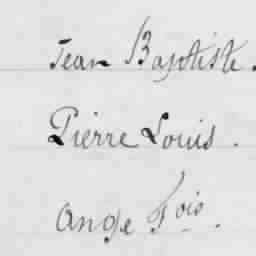 Jean Baptiste.
Pierre Louis.
Ange Fois.